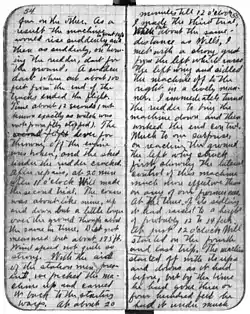 54
far on the other. As a
result the machine would
rise suddenly to
then as suddenly, on turn-
ing the rudder, dart for
the ground. A sudden
dart when out about 100
feet from the end of the
tracks ended the flight.
Time about 12 seconds (not
known exactly as watch was
not promptly stopped). The
lever for
throwing off the engine
was broken, and the skid
under the rudder cracked.
After repairs, at 20 min.
after 11 o'clock Will made
the second trial. The course
was about like mine, up
and down but a little longer
over the ground though about
the same in time. Dist. not
measured but about 175 ft.
Wind speed not quite so
strong. With the aid
of the station men pre-
sent, we picked the ma-
chine up and carried
it back to the starting
ways. At about 20
minutes till 12 o'clock
I made the third trial.
When out about the same
distance as Will's, I
met with a strong gust
from the left which raised
the left wing and sidled
the machine off to the
right in a lively man-
ner. I immediately turned
the rudder to bring the
machine down and then
worked the end control.
Much to our surprise
on reaching the ground
the left wing struck
first, showing the lateral
control of this machine
much more effective than
on any of our former ones.
At the time of its sidling
it had raised to a height
of probably 12 to 14 feet.
At just 12 o'clock Will
started on the fourth
and last trip. The machine
started off with its ups
and downs as it had
before, but by the time
he had gone three or
four hundred feet he
had it under much